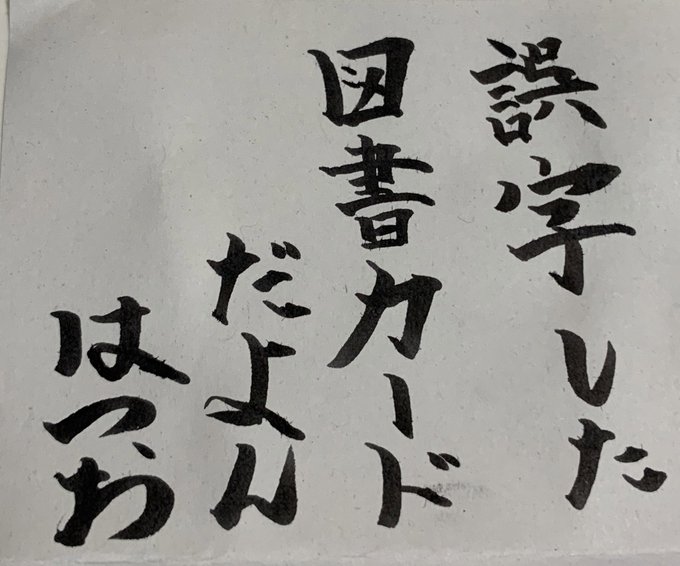 誤字した
図書カード
だよん
はつお